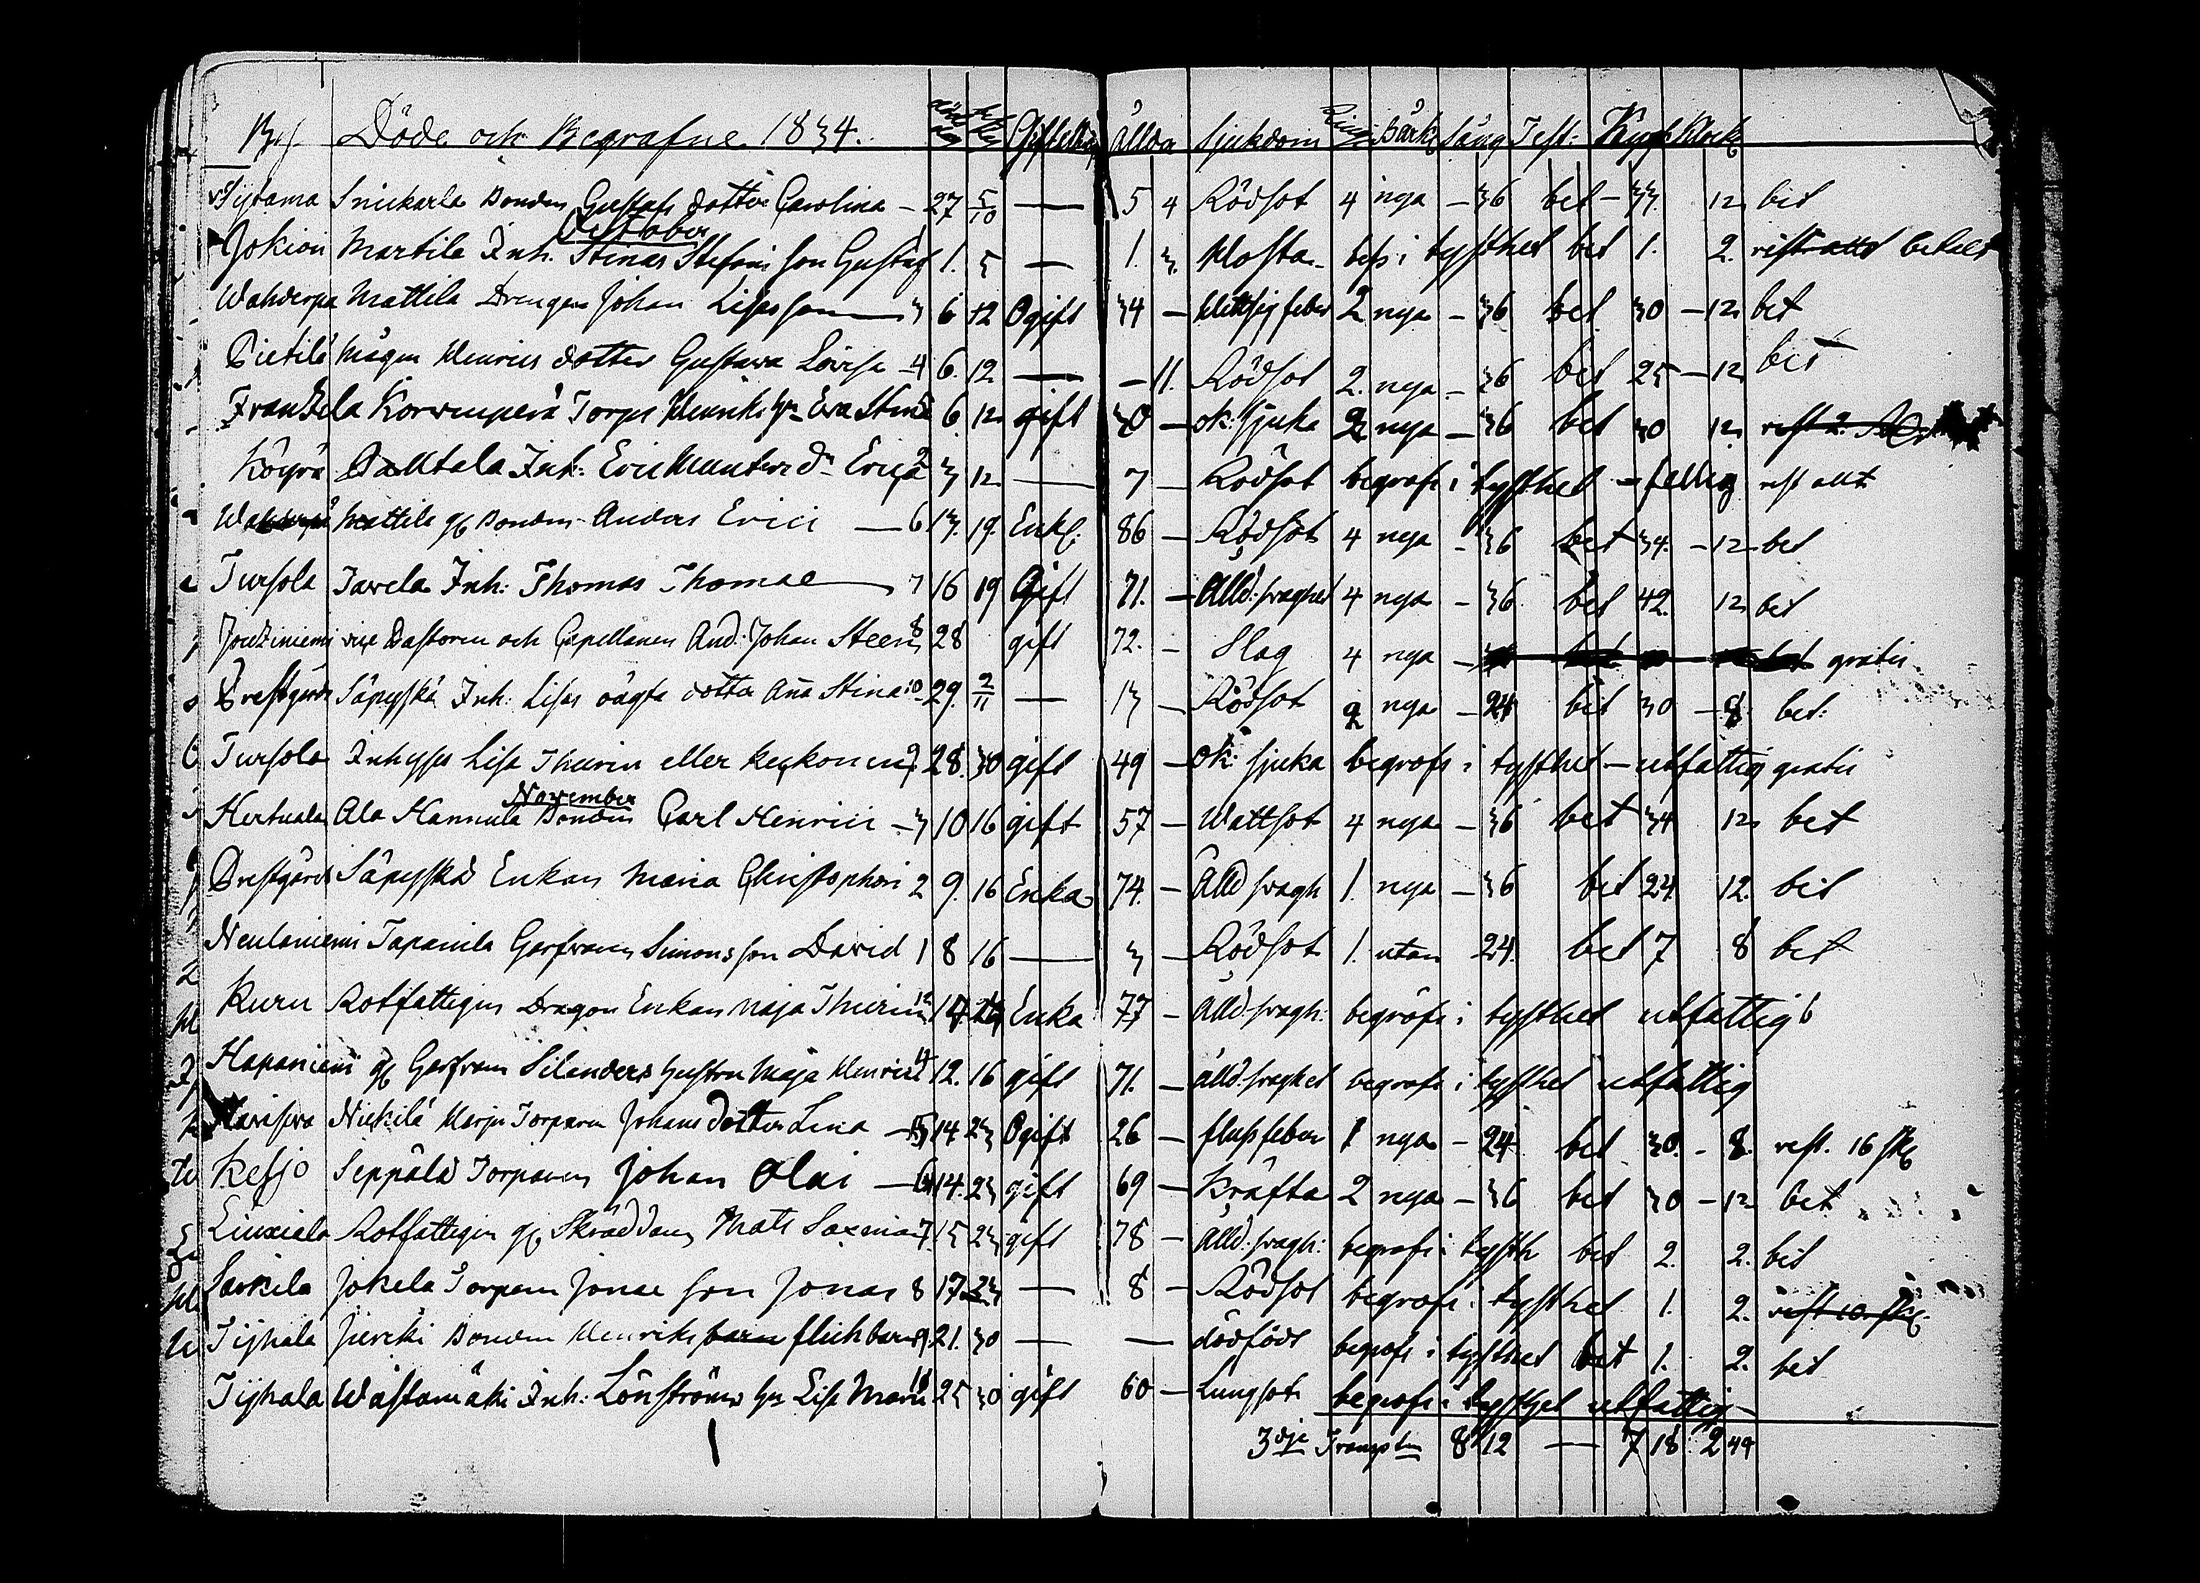 By. Döde och Begrafne 1834. Gift ell Ålder Sjukdom Ring Bårkl Sång Test: Kyrk Klock
Sijtama Snickarla Bonden Gustafs dotter Carolina — 27 5/10 — 5 4 Rödsot 4 nya — 36 bet — 33 12 bet
October
Jokion Martila Inh. Stinas Stefani son Gustaf 1. 5 — 1. 3. Hosta begr i tysthet bet 1. 2. rest allt betalt
Wahderpä Mattila Drengen Johan Lisas son — 3 6 12 Ogift 34 — Hettsig feber 2 nya — 36 bet 30 — 12 bet
Pietilä Mågen Henrics dotter Gustava Lovisa — 4 6. 12 — — 11. Rödsot 2. nya — 36 bet 25 — 12 bet
Franzila Korwenperä Torps Henriks hu Eva Stina 6 12 gift 30 — ok: sjuka 2 nya — 36 bet 30 12 rest 2.
Köyrä Inh: Eric dr Erica 2 3 12 — 7 — Rödsot begrafs i tysthet — fattig rest allt
Mattila gl Bonden Anders Erici — 6 13. 19. Enkl: 86 — Rödsot 4 nya — 36 bet 34. — 12 — bet
Tursola Tawela Inh: Thomas Thomae — 7 16 19 Gift 71. — Ålld: svaghet 4 nya — 36 bet 42. 12 bet
vice Pastorn och Capellanen And: Johan Steen 8 28 gift 72. — Slag 4 nya — gratis
Prestgårds Säpyskä Inh: Lisas oägta dotter Aña Stina 10 29. 2/11 — 13 — Rödsot 2 nya — 24 bet 30 — 8 bet:
Tursola Inhyses Lisa Thurin eller 9 28. 30 gift 49 — Ok: sjuka begrafs i tysthet — utfattig gratis
November
Hertuala Ala Hannula Bonden Carl Henrici — 3 10 16 gift 57 — Wattsot 4 nya — 36 bet 34 12 bet
Prestgårds Säpyskä Enkan Maria Christophori 2 9. 16 Enka 74. — Ålld svagh 1. nya — 36 bet 24 12. bet
Neulaniemi Tapanila Garfvaren Simons son David 1 8 16 — 3 — Rödsot 1. utan 24. bet 7 8 bet
Kuru Rotfattigen Dragon Enkan Maja Thurin 12 Enka 77 — Ålld: svagh: begrafs i tysthet utfattig
Hapaniemi gl Garfvaren Silanders hustru Maja Henrici 4 12. 16 gift 71. — ålld: svaghet begrafs i tysthet utfattig
Nickilä Torparen Johans dotter Lena — 5 14 23 Ogift 26 — flussfeber 1 nya — 24 bet 30. — 8. rest. 16 sk
Kesjo Seppälä Torparen Johan Olai — 6 14. 23 gift 69 — Kräfta 2 nya — 36 bet 30 — 12 bet
Liuxiala Rotfattigen gl. Skräddaren Mats Saxman 7. 15 23 gift 78 — Ålld: svagh: begrafs i tysth bet 2. 2. bet
Sarkila Jokela Torparen Jonae son Jonas 8 17 23 — 8 — Rödsot begrafs i tysthet 1. 2. rest 10 sk.
Tijhala Jierki Bonden Henriks barn flickbarn 9 21. 30 — — dödfödt begrafs i tysthet bet 1. 2. bet
Tijhala Wästamäki Inh: Lönströms hu Lisa Maria 10 25 30 gift 60 — Lungsot begrafs i tysthet utfattig
3dje Transpten 8 12 — 7 18 2 44